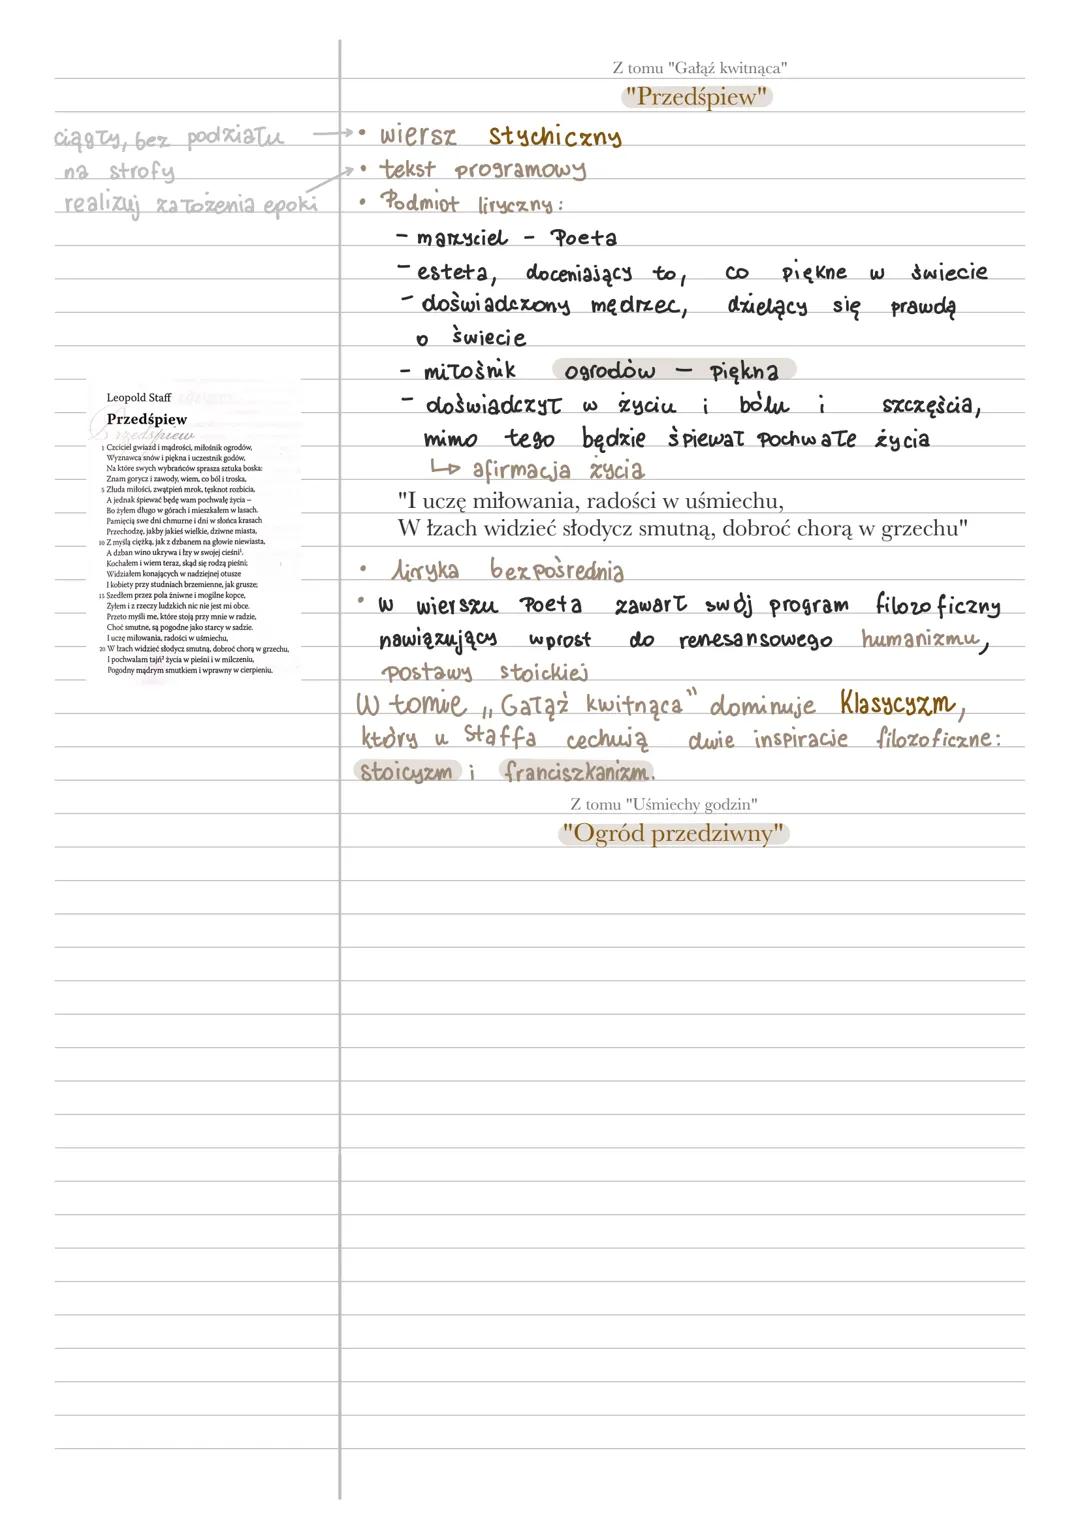 Z tomu "Gałąź kwitnąca"
"Przedśpiew"
ciągły, bez podziału
na strofy
realizuj założenia epoki
• wiersz stychiczny
• tekst programowy
• Podmiot liryczny:
- marzyciel - Poeta
- esteta, doceniający to, co piękne w świecie
- doświadczony mędrzec, dzielący się prawdą
o świecie
- miłośnik ogrodów - piękna
- doświadczył w życiu i bólu i szczęścia,
mimo tego będzie śpiewał pochwałe życia
↳ afirmacja życia
"I uczę miłowania, radości w uśmiechu,
W łzach widzieć słodycz smutną, dobroć chorą w grzechu"
• liryka bezpośrednia
• w wierszu Poeta zawarł swój program filozoficzny
nawiązujący wprost do renesansowego humanizmu,
postawy stoickiej
W tomie „Gałąź kwitnąca" dominuje Klasycyzm,
który u Staffa cechują dwie inspiracje filozoficzne:
stoicyzm i franciszkanizm.
Z tomu "Uśmiechy godzin"
"Ogród przedziwny"
Leopold Staff
Przedśpiew
Przedśpiew
1 Czciciel gwiazd i mądrości, miłośnik ogrodów,
Wyznawca snów i piękna i uczestnik godów,
Na które swych wybrańców sprasza sztuka boska:
Znam gorycz i zawody, wiem, co ból i troska,
5 Złuda miłości, zwątpień mrok, tęsknot rozbicia,
A jednak śpiewać będę wam pochwałę życia –
Bo żyłem długo w górach i mieszkałem w lasach.
Pamięcią swe dni chmurne i dni w słońca krasach
Przechodzę, jakby jakieś wielkie, dziwne miasta,
10 Z myślą ciężką, jak z dzbanem na głowie niewiasta,
A dzban wino ukrywa i łzy w swojej cieśni¹.
Kochałem i wiem teraz, skąd się rodzą pieśni;
Widziałem konających w nadziejnej otusze
I kobiety przy studniach brzemienne, jak grusze;
15 Szedłem przez pola żniwne i mogilne kopce,
Żyłem i z rzeczy ludzkich nic nie jest mi obce.
Przeto myśli me, które stoją przy mnie w radzie,
Choć smutne, są pogodne jako starcy w sadzie.
I uczę miłowania, radości w uśmiechu,
20 W łzach widzieć słodycz smutną, dobroć chorą w grzechu,
I pochwalam tajń² życia w pieśni i w milczeniu,
Pogodny mądrym smutkiem i wprawny w cierpieniu.